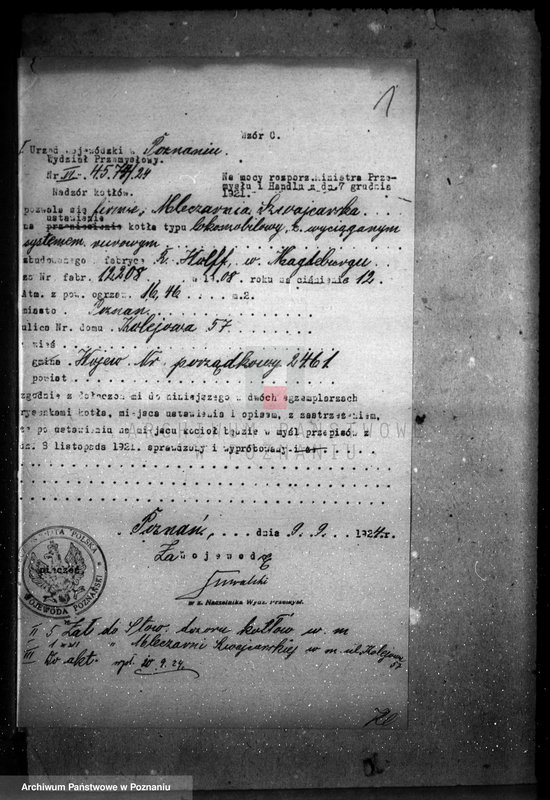 1
Wzór C.
Urząd Wojewódzki w Poznaniu.
Wydział Przemysłowy.
Nr VI- 4574/24
Nadzór kotłów.
Na mocy rozporz. Ministra Prze-
mysłu i Handlu z dn. 7 grudnia
1921.
pozwala się firmie, Mleczarnia Szwajcarska
ustawienie
na przeniesienie kotła typu lokomobilowy z wyciąganym
systemem rurowym
zbudowanego w fabryce R. Wolff, w. Magdeburgu
za Nr fabr. 12208 w 1908 roku na ciśnienie 12
Atm. z pow. ogrzew. 16,46 m.2.
miasto Poznań
ulica Nr. domu Kolejowa 57
wieś
gmina Wojew Nr porządkowy 2461
powiat
zgodnie z dołączonymi do niniejszego w dwóch egzemplarzach
rysunkami kotła, miejsca ustawienia i opisem, z zastrzeżeniem,
że po ustawieniu na miejscu kocioł będzie w myśl przepisów z
dn. 9 listopada 1921. sprawdzony i wypróbowany
ARCHIWUM PAŃSTWOWE
W POZNANIU
Poznań, dnia 9.9. 1924 r.
Za wojewodę
w z. Naczelnika Wydz. Przemysł.
WOJEWODA POZNAŃSKI
II 5 Zał do Stow. dozoru kotłów w m
" Mleczarni Szwajcarskiej w m. ul. Kolejowa
57
III Do akt. 20.9.24
Archiwum Państwowe w Poznaniu